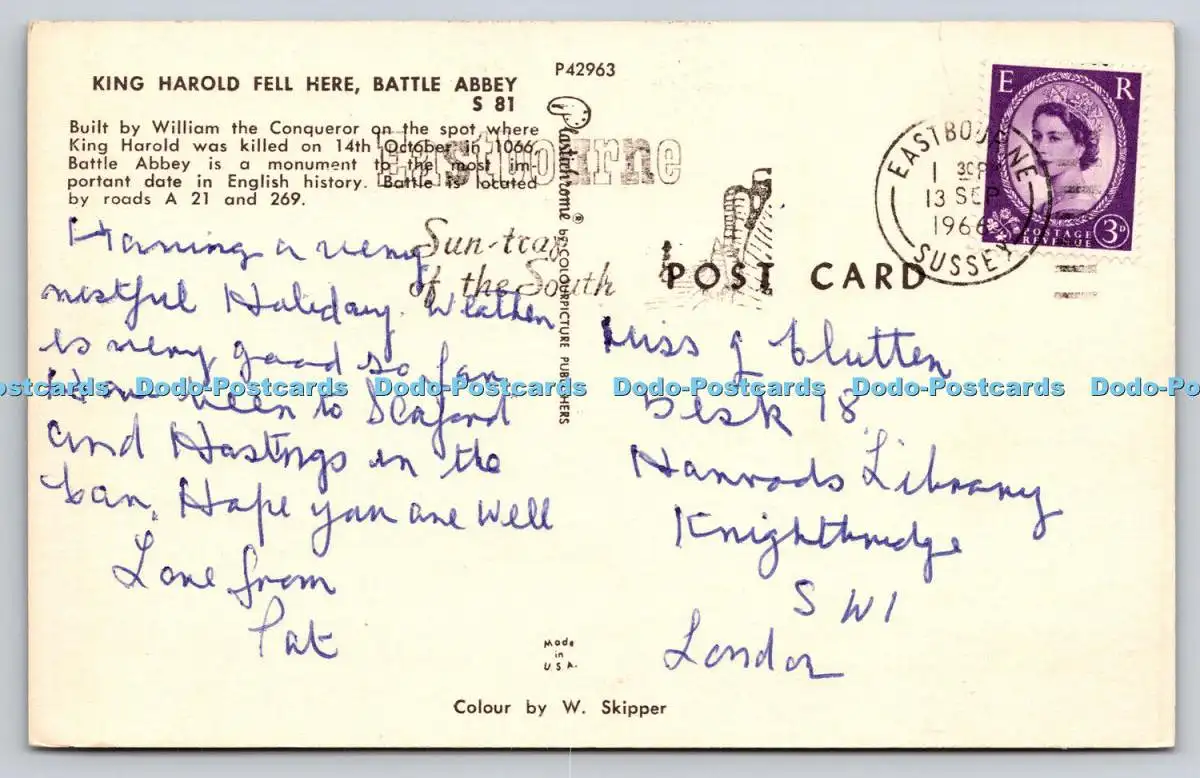 P42963
KING HAROLD FELL HERE, BATTLE ABBEY
S 81
Built by William the Conqueror on the spot where
King Harold was killed on 14th October in 1066.
Battle Abbey is a monument to the most im-
portant date in English history. Battle is located
by roads A 21 and 269.
Having a very
restful Holiday. Weather
is very good so far
Have been to Seaford
and Hastings in the
car. Hope you are well
Love from
Pat
Plastichrome ® by COLOURPICTURE PUBLISHERS
Eastbourne
Sun-trap
of the South
EASTBOURNE
1 30P
13 SEP
1966
SUSSEX
E R
POSTAGE
REVENUE
3D
POST CARD
Miss J Clutten
Desk 18
Harrods Library
Knightbridge
SW1
London
Made
in
U.S.A.
Colour by W. Skipper
Dodo-Postcards Dodo-Postcards Dodo-Postcards Dodo-Postcards Dodo-Postcards